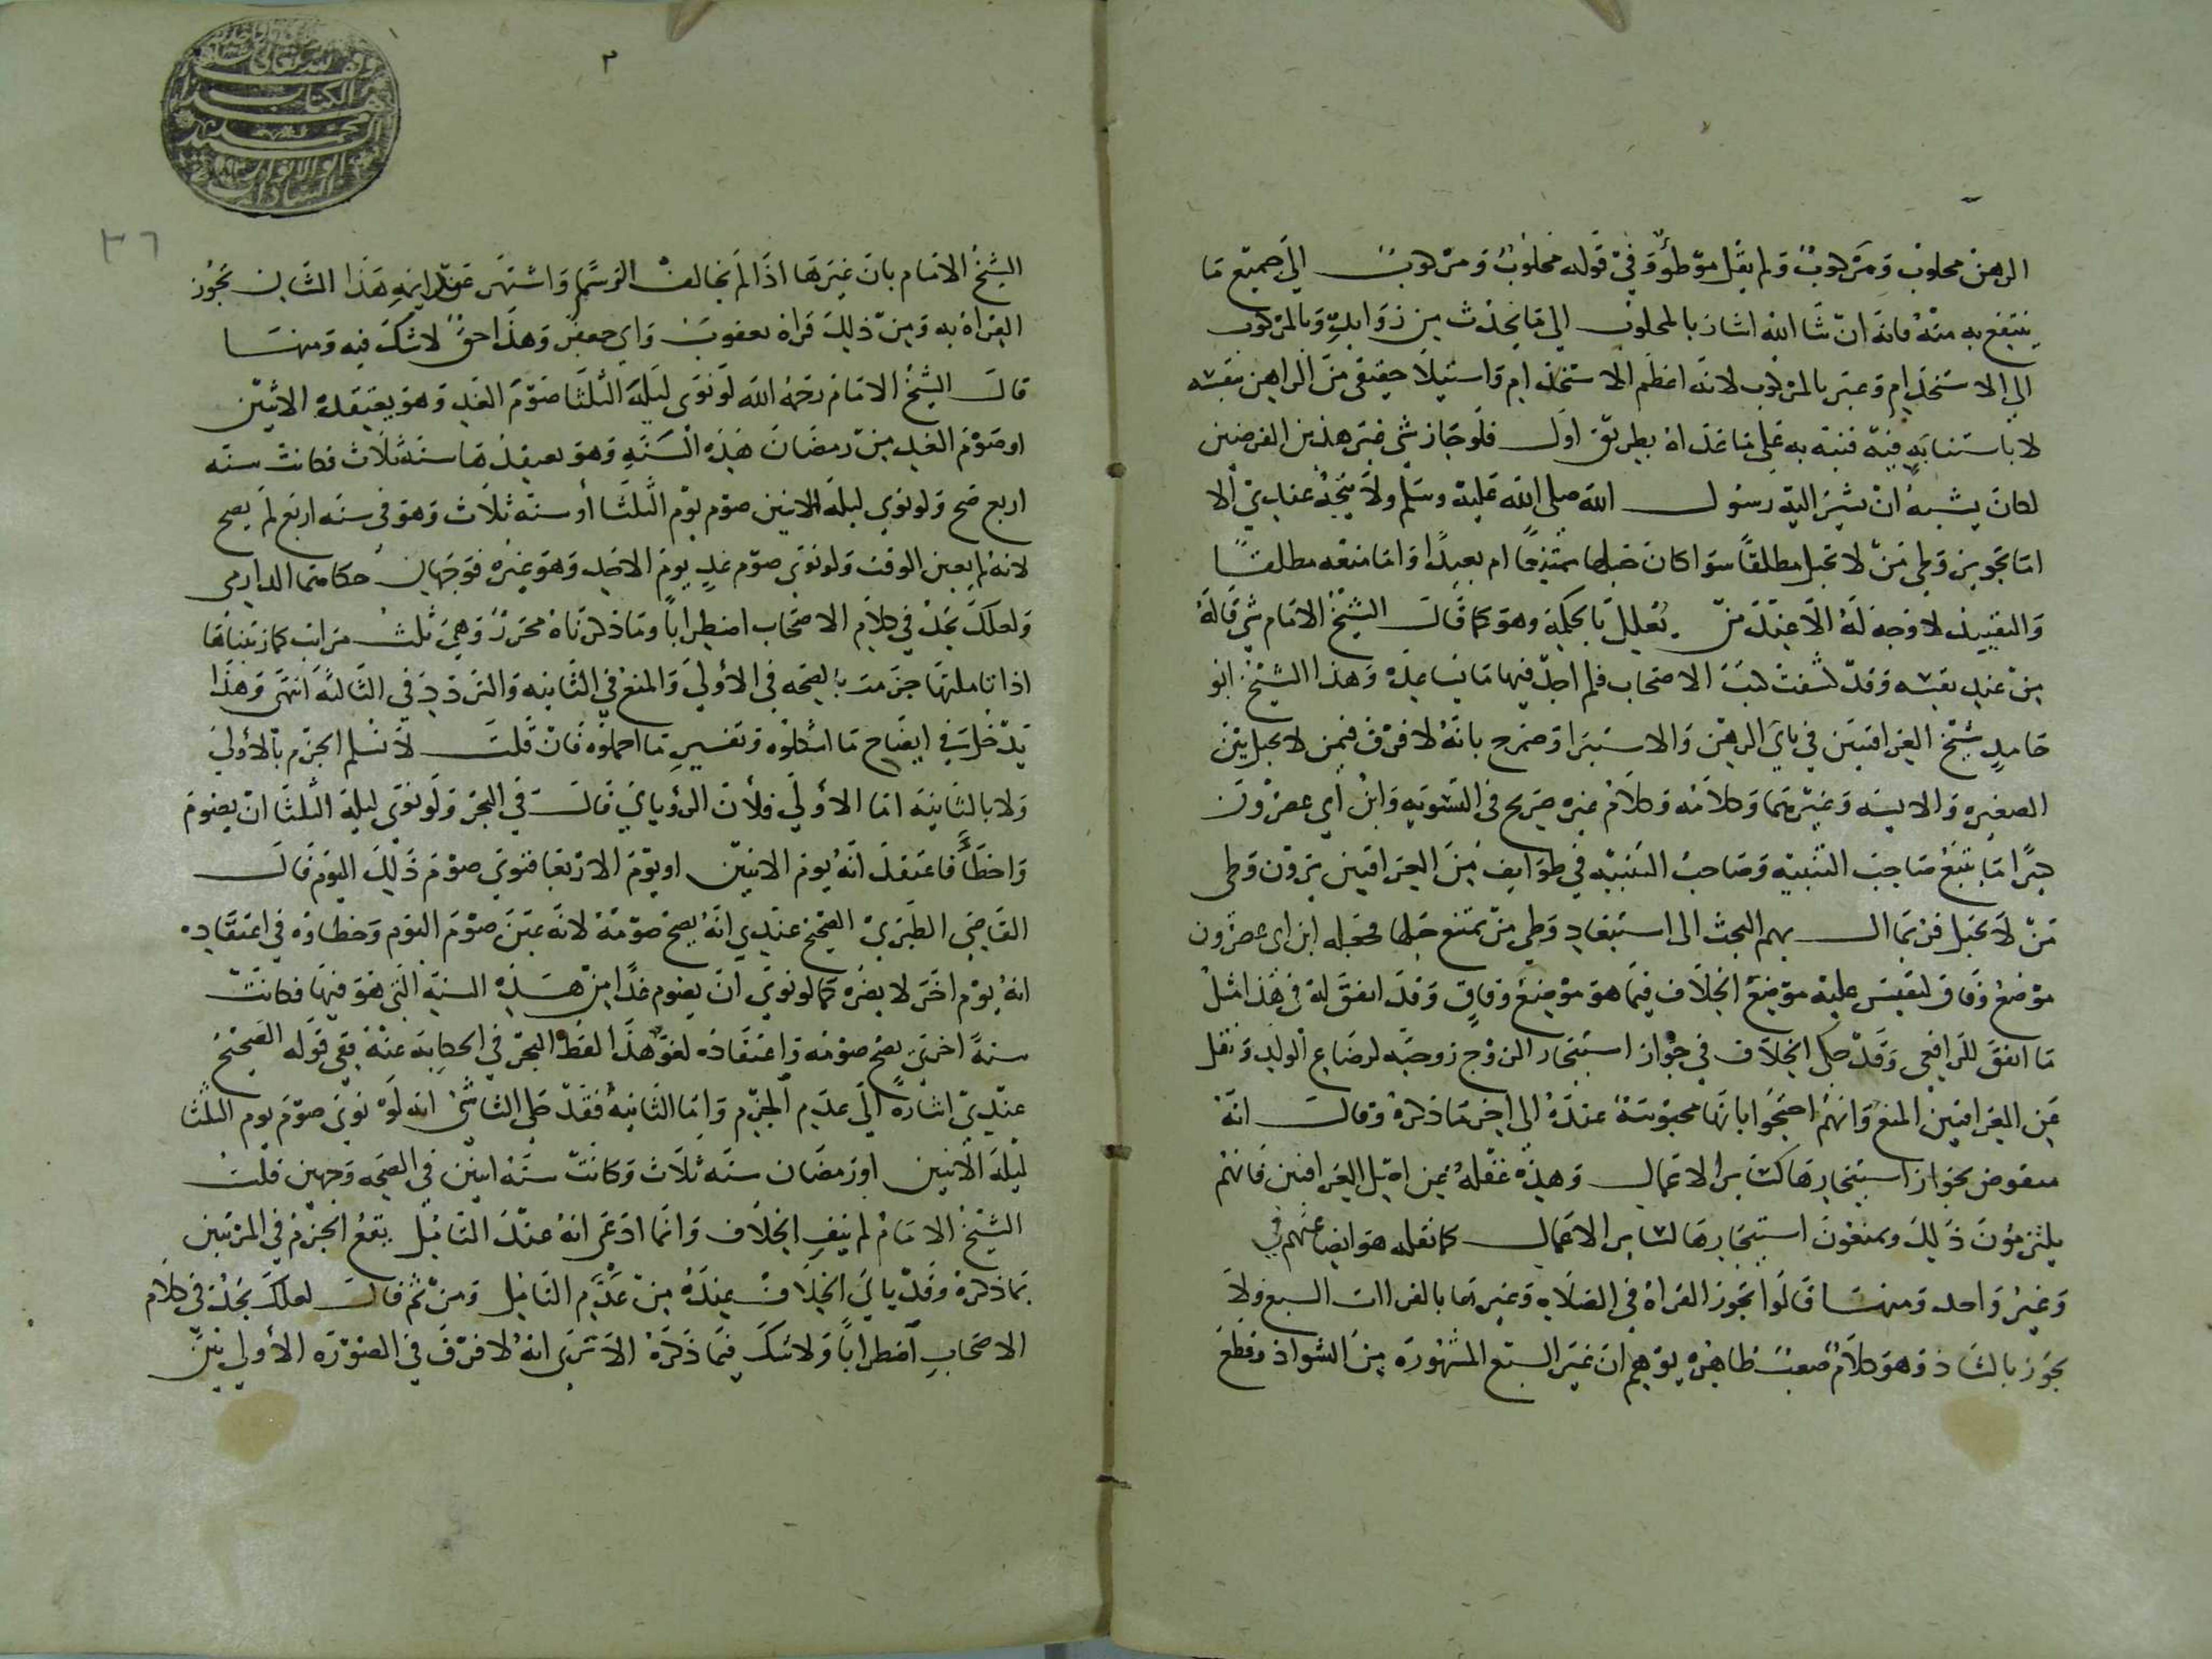 الرهن محلوب ومركوب ولم يقل موطؤ وفي قوله محلوب ومركوب الى جميع ما
ينتفع به منه فانه ان شا الله اشار بالمحلوب الى ما يحدث من زوايده وبالمركوب
الى الاستخدام وعبر بالمركوب لانه اعظم الاستخدام واستيلا حقيقي من الراهن بنفسه
لا باستنابه فيه فنبه به على ما عداه بطريق اولى فلو جاز شي غير هذين الغرضين
لكان يشبه ان يشير اليه رسول الله صلى الله عليه وسلم ولا يتجه عندي الا
اما تجويز وطي من لا تحبل مطلقا سوا كان حبلها متوقعا ام بعيدا واما منعه مطلقا
والتقييد لا وجه له الا عند من يعلل بالحكمة وهو كما قال الشيخ الامام شي قاله
من عند نفسه وقد كشفت كتب الاصحاب فلم اجد فيها ما يساعده وهذا الشيخ ابو
حامد شيخ العراقيين في بابي الرهن والاستبرا وصرح بانه لا فرق فيمن لا يحبل بين
الصغيره والايسه وغيرهما وكلامه وكلام غيره صريح في التسويه وابن ابي عصرون
كثيرا ما يتبع صاحب التنبيه وصاحب التنبيه في طوايف من العراقيين يرون وطي
من لا تحبل فربما ال بهم البحث الى استبعاد وطي من يمتنع حبلها فجعله ابن ابي عصرون
موضع وفاق ليقيس عليه موضع الخلاف فيما هو موضع وفاق وقد اتفق له في هذا مثل
ما اتفق للرافعي وقد حكى الخلاف في جواز استيجار الزوج زوجته لرضاع الولد ونقل
عن العراقيين المنع وانهم احتجوا بانها محبوسة عنده الى اخر ما ذكره وقال انه
منقوض بجواز استيجارها لساير الاعمال وهذه غفله عن اصل العراقيين فانهم
يلتزمون ذلك ويمنعون استيجارها لساير الاعمال كما نقله هو ايضا عنهم في
وغير واحد ومنها قالوا تجوز القراة في الصلاه وغيرها بالقراات السبع ولا
تجوز بالشاذ وهو كلام صعب ظاهره يوهم ان غير السبع المشهوره من الشواذ وقطع
٣
وقف لله تعالى
هذا الكتاب
محمد
ابو الانوار
السادات
٣٦
الشيخ الامام بان غيرها اذا لم يخالف الرسم واشتهر عند ايمه هذا الشان تجوز
القراة به ومن ذلك قراة يعقوب وابي جعفر وهذا حق لا شك فيه ومنها
قال الشيخ الامام رحمه الله لو نوى ليلة الثلثا صوم الغد وهو يعتقده الاثنين
او صوم الغد من رمضان هذه السنه وهو يعتقدها سنه ثلاث فكانت سنه
اربع صح ولو نوى ليلة الاثنين صوم يوم الثلثا او سنه ثلاث وهو في سنه اربع لم يصح
لانه لم يعين الوقت ولو نوى صوم غد يوم الاحد وهو غيره فوجهان حكاهما الدارمي
ولعلك تجد في كلام الاصحاب اضطرابا وما ذكرناه محرر وهي ثلث مراتب كما رتبناها
اذا تاملتها جزمت بالصحه في الاولى والمنع في الثانيه والتردد في الثالثه انتهى وهذا
يدخل في ايضاح ما اشكلوه وتفسير ما اجملوه فان قلت لا نسلم الجزم بالاولى
ولا بالثانيه اما الاولى فلان الروياني قال في البحر ولو نوى ليلة الثلثا ان يصوم
واخطا فاعتقد انه يوم الاثنين او يوم الاربعا فنوى صوم ذلك اليوم قال
القاضي الطبري الصحيح عندي انه يصح صومه لانه عين صوم اليوم وخطاوه في اعتقاده
انه يوم اخر لا يضره كما لو نوى ان يصوم غدا من هذه السنه التي هو فيها فكانت
سنة اخرى يصح صومه واعتقاده لغو هذا لفظ البحر في الحكايه عنه بقي قوله الصحيح
عندي اشارة الى عدم الجزم واما الثانيه فقد حكى الشاشي انه لو نوى صوم يوم الثلثا
ليلة الاثنين او رمضان سنه ثلاث وكانت سنه اثنين في الصحه وجهين قلت
الشيخ الامام لم ينف الخلاف وانما ادعى انه عند التامل يقع الجزم في المرتبتين
بما ذكره وقد ياتي الخلاف عنده من عدم التامل ومن ثم قال لعلك تجد في كلام
الاصحاب اضطرابا ولا شك فيما ذكره الا ترى انه لا فرق في الصوره الاولى بين